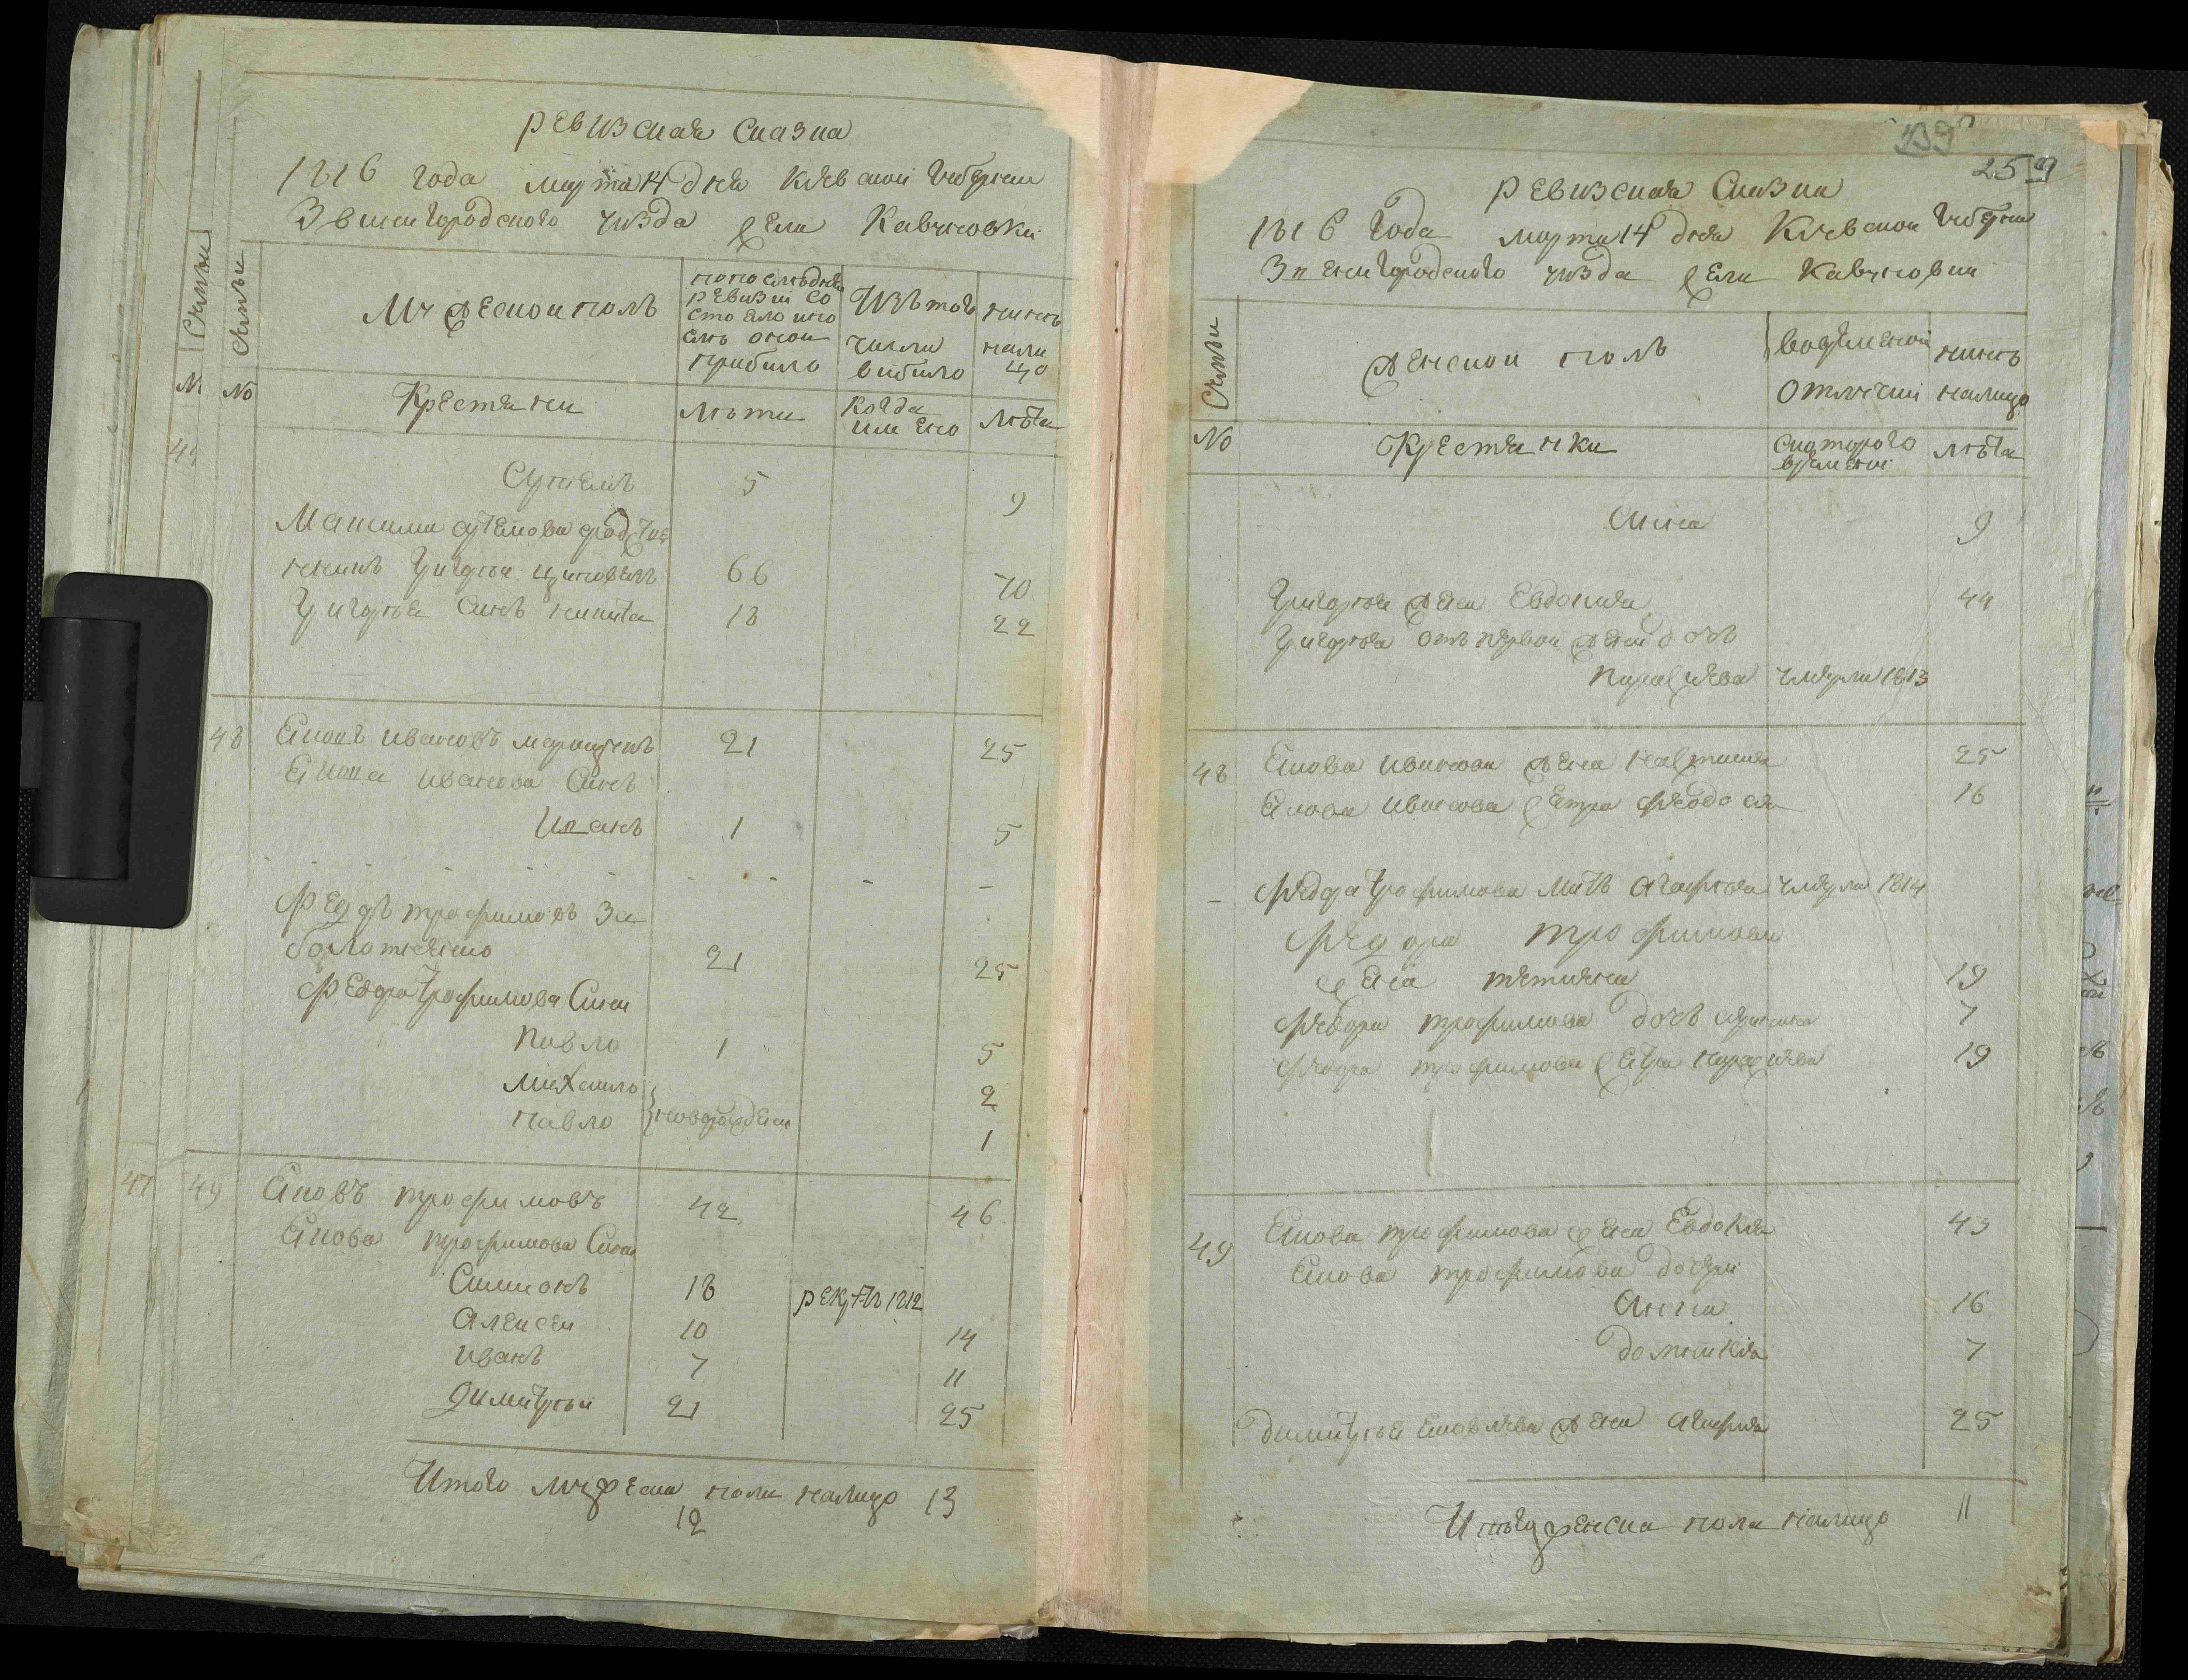 ревизская сказка
1816 года марта 14 дня киевской губернии
Звенигородского уезда села Кавуновки
Семьи
Семьи
Мужеской полъ
по последней
ревизіи со
стояло и по
слѣ оной
прибыло
Изъ того
числа
выбыло
нинѣ
нали
цо
№
№
Крестяни
лѣта
Когда
именно
лѣта
Артемъ 5 9
Максима артемова
Григорій 66 70
Григорія синъ никита 18 22
48 Яковъ Ивановъ 21 25
Якова Иванова Синъ
Иванъ 1 5
Федоръ трофимовъ За
болотненко 21 25
Федора трофимова Сини
Павло 1 5
Михайло 2
Павло новорождени 1
47 49 Яковъ трофимовъ 42 46
Якова трофимова Сини
Симионъ 18 рекрутъ 1812
Алексей 10 14
Иванъ 7 11
Димитрій 21 25
Итого мужеска пола налицо 13
12
139
259
ревизская Сказка
1816 Года марта 14 дня Киевской Губерни
Звенигородского уезда села Кавуновки
Семьи
Женской полъ
во временой
отлучки
нинѣ
налицо
№
Крестянки
с которого
времени
лѣта
Анна 9
Григорія жена Евдокия 44
Григорія отъ первой жени дочъ
Параскева умерла 1813
48 Якова Иванова жена настасия 25
Якова Иванова сестра феодосия 16
Федора трофимова мать Агафия умерла 1814
Федора трофимова
жена татияна 19
Федора трофимова дочъ 7
Федора трофимова сестра параскева 19
49 Якова трофимова жена Евдокия 43
Якова трофимова дочери
Анна 16
домникия 7
Димитрія Яковлева жена Агафия 25
Итого женска пола налицо 11